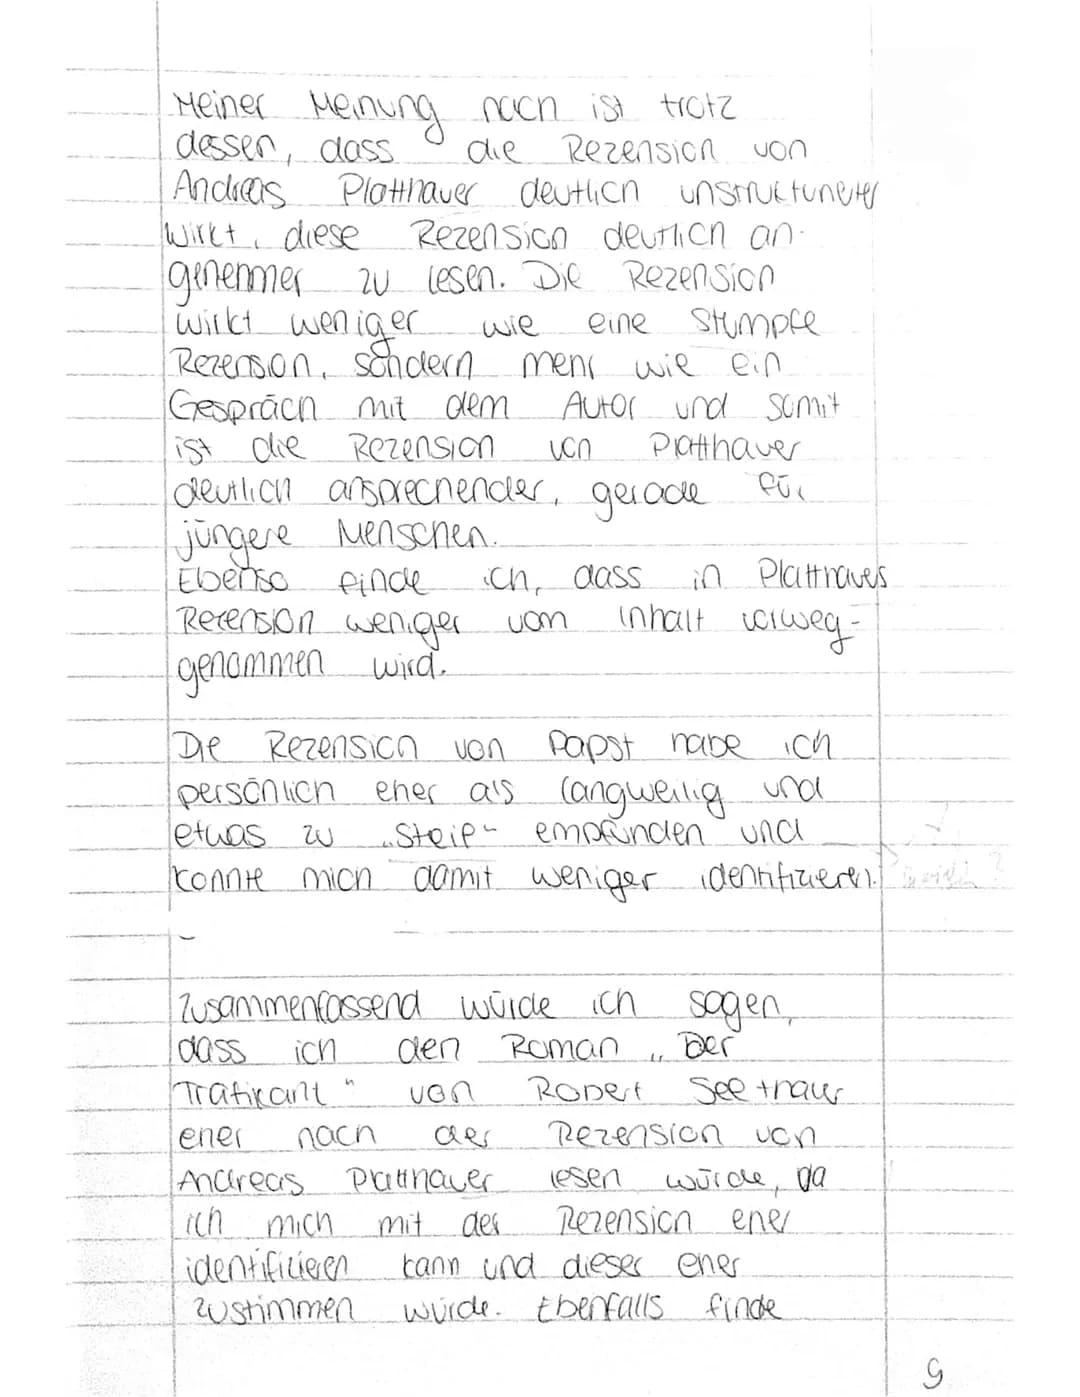 Meiner Meinung nach ist trotz
dessen, dass die Rezension von
Andreas Platthauer deutlich unstrukturierter
wirkt, diese Rezension deutlich an-
genehmer zu lesen. Die Rezension
wirkt weniger wie eine stumpfe
Rezension, sondern mehr wie ein
Gespräch mit dem Autor und somit
ist die Rezension von Platthauer
deutlich ansprechender, gerade für
jüngere Menschen.
Ebenso finde ich, dass in Platthauers
Rezension weniger vom Inhalt vorweg-
genommen wird.
Die Rezension von Papst habe ich
persönlich eher als langweilig und
etwas zu „steif" empfunden und
konnte mich damit weniger identifizieren.
Zusammenfassend würde ich sagen,
dass ich den Roman „Der
Trafikant" von Robert Seethaler
eher nach der Rezension von
Andreas Platthauer lesen würde, da
ich mich mit der Rezension eher
identifizieren kann und dieser eher
zustimmen würde. Ebenfalls finde
9